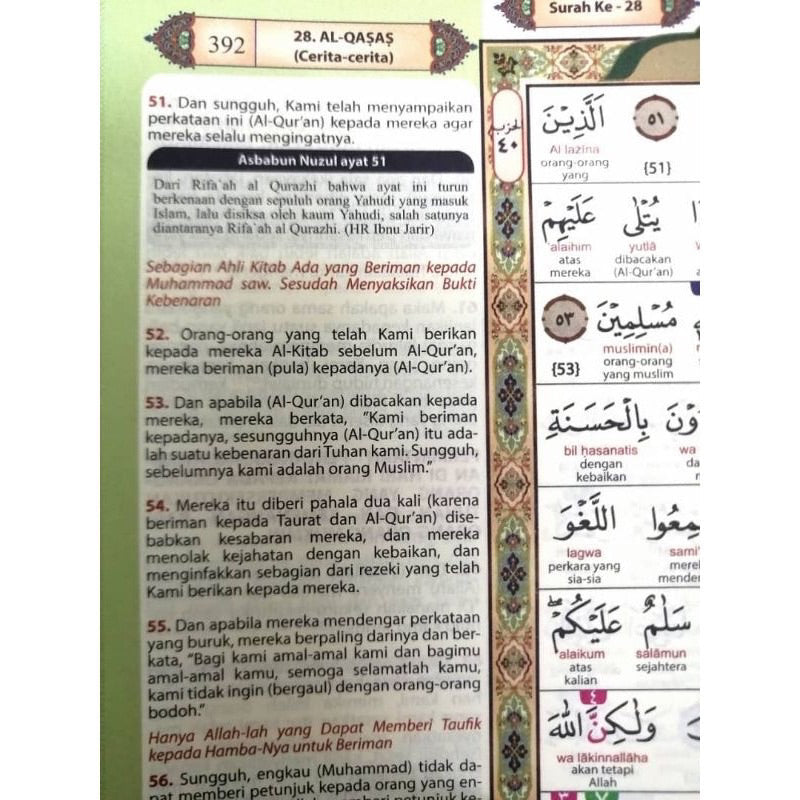 392
28. AL-QAṢAṢ
(Cerita-cerita)
Surah Ke - 28
51. Dan sungguh, Kami telah menyampaikan
perkataan ini (Al-Qur'an) kepada mereka agar
mereka selalu mengingatnya.
Asbabun Nuzul ayat 51
Dari Rifa`ah al Qurazhi bahwa ayat ini turun
berkenaan dengan sepuluh orang Yahudi yang masuk
Islam, lalu disiksa oleh kaum Yahudi, salah satunya
diantaranya Rifa`ah al Qurazhi. (HR Ibnu Jarir)
Sebagian Ahli Kitab Ada yang Beriman kepada
Muhammad saw. Sesudah Menyaksikan Bukti
Kebenaran
52. Orang-orang yang telah Kami berikan
kepada mereka Al-Kitab sebelum Al-Qur'an,
mereka beriman (pula) kepadanya (Al-Qur'an).
53. Dan apabila (Al-Qur'an) dibacakan kepada
mereka, mereka berkata, "Kami beriman
kepadanya, sesungguhnya (Al-Qur'an) itu ada-
lah suatu kebenaran dari Tuhan kami. Sungguh,
sebelumnya kami adalah orang Muslim."
54. Mereka itu diberi pahala dua kali (karena
beriman kepada Taurat dan Al-Qur'an) dise-
babkan kesabaran mereka, dan mereka
menolak kejahatan dengan kebaikan, dan
menginfakkan sebagian dari rezeki yang telah
Kami berikan kepada mereka.
55. Dan apabila mereka mendengar perkataan
yang buruk, mereka berpaling darinya dan ber-
kata, "Bagi kami amal-amal kami dan bagimu
amal-amal kamu, semoga selamatlah kamu,
kami tidak ingin (bergaul) dengan orang-orang
bodoh."
Hanya Allah-lah yang Dapat Memberi Taufik
kepada Hamba-Nya untuk Beriman
56. Sungguh, engkau (Muhammad) tidak da-
pat memberi petunjuk kepada orang yang en-
الحزب
٤٠
الَّذِيْنَ ٥١
Al lażīna
orang-orang {51}
yang
يُتْلٰى عَلَيْهِمْ
'alaihim yutlā
atas dibacakan
mereka (Al-Qur'an)
مُسْلِمِيْنَ ٥٣
muslimīn(a)
{53} orang-orang
yang muslim
بِالْحَسَنَةِ
bil ḥasanatis wa
dengan
kebaikan
اللَّغْوَ
lagwa sami'
perkara yang
sia-sia
سَلٰمٌ عَلَيْكُمْۖ
'alaikum salāmun
atas sejahtera
kalian
وَلٰكِنَّ اللّٰهَ
wa lākinnallāha
akan tetapi
Allah